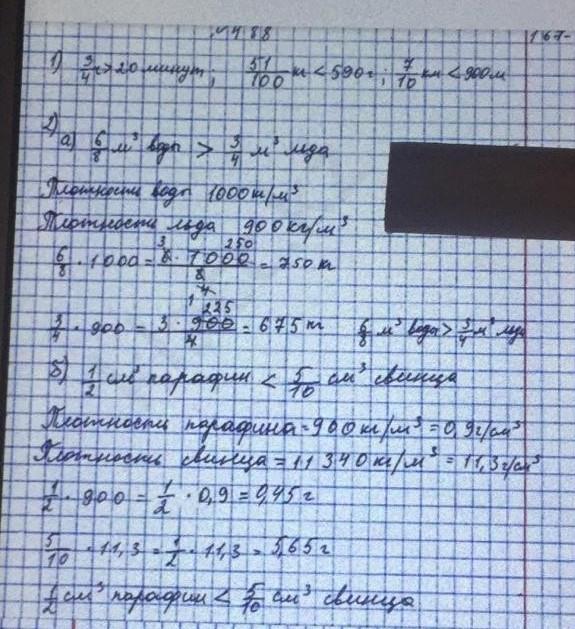 №488
167-
1) 3/4 ч > 20 минут; 51/100 кг < 590 г; 7/10 км < 900 м
2)
а) 6/8 м³ воды > 3/4 м³ льда
Плотность воды 1000 кг/м³
Плотность льда 900 кг/м³
6/8 · 1000 = 6 · 1000/8 = 750 кг
3/4 · 900 = 3 · 900/4 = 675 кг 6/8 м³ воды > 3/4 м³ льда
б) 1/2 см³ парафин < 5/10 см³ свинца
Плотность парафина = 900 кг/м³ = 0,9 г/см³
Плотность свинца = 11340 кг/м³ = 11,3 г/см³
1/2 · 900 = 1/2 · 0,9 = 0,45 г
5/10 · 11,3 = 1/2 · 11,3 = 5,65 г
1/2 см³ парафин < 5/10 см³ свинца